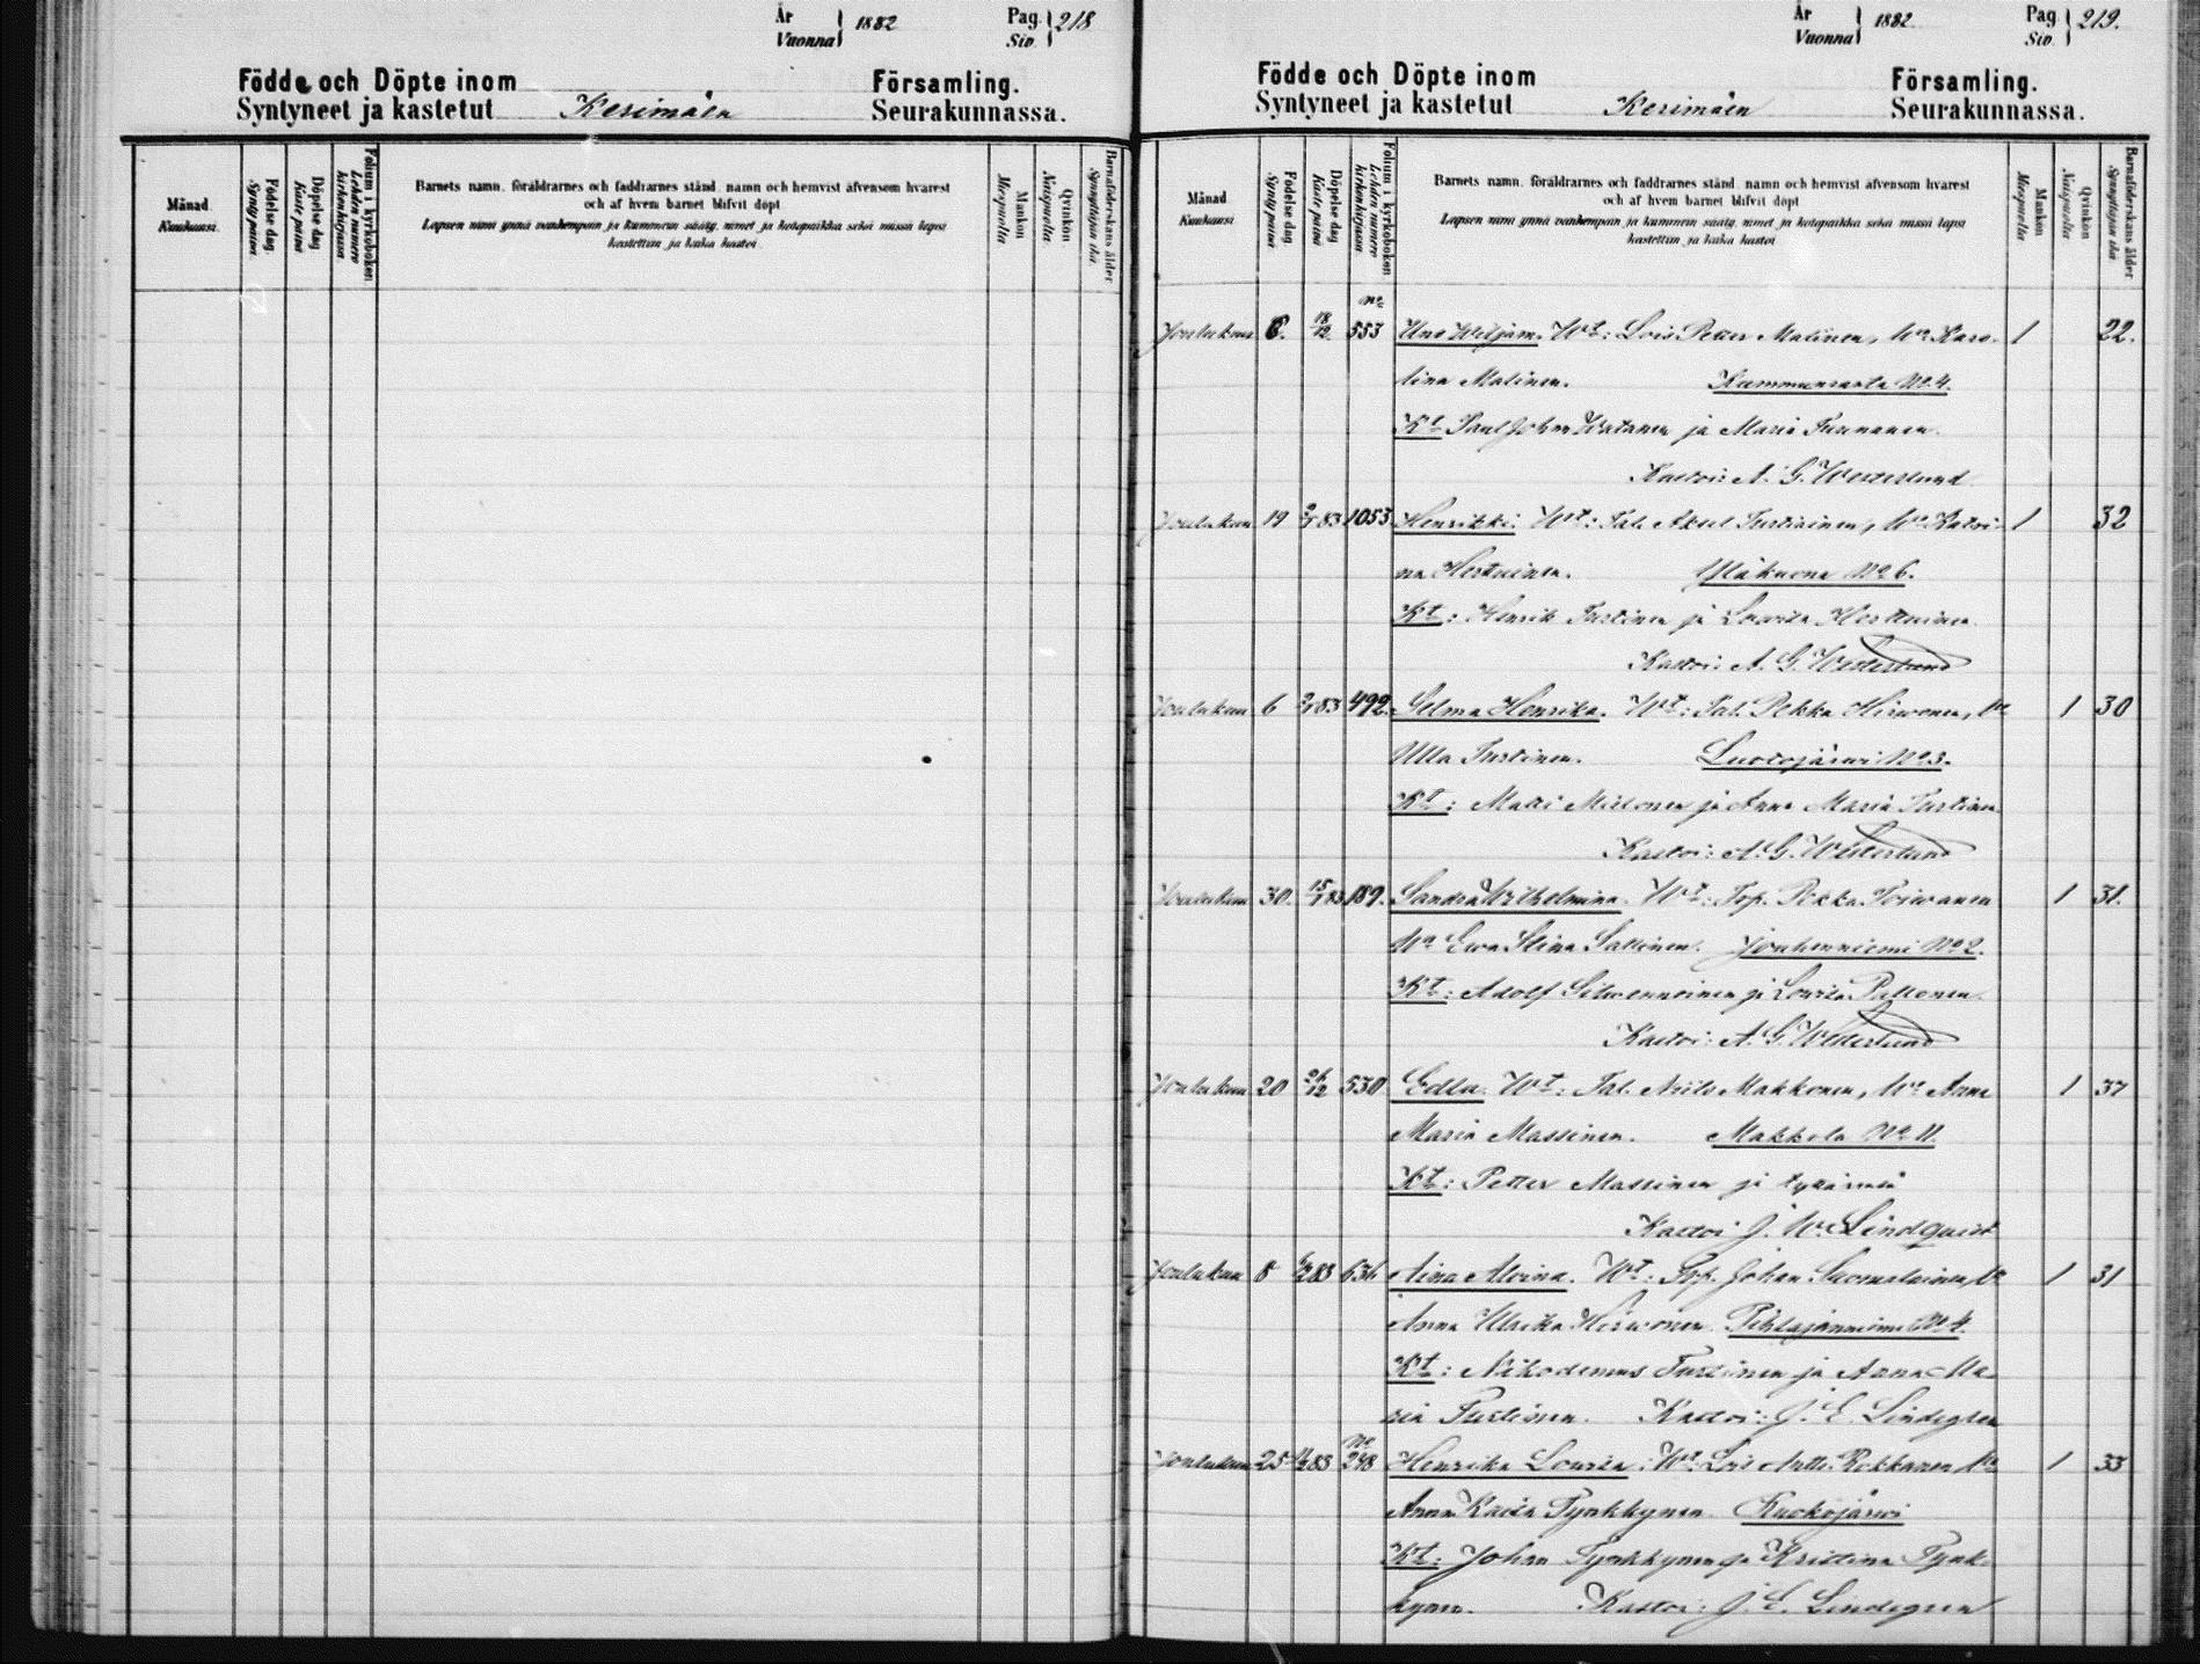 År
Vuonna } 1882
Pag.
Siv. } 218
Födde och Döpte inom Församling.
Syntyneet ja kastetut Kerimäen Seurakunnassa.
Månad.
Kuukausi.
Födelse dag.
Synty päivä
Döpelse dag
Kaste päivä
Folium i kyrkoboken
Lehden numero kirkonkirjassa
Barnets namn, föräldrarnes och faddrarnes stånd, namn och hemvist äfvensom hvarest
och af hvem barnet blifvit döpt
Lapsen nimi ynnä vanhempain ja kummein sääty, nimet ja kotopaikka sekä missä lapsi
kastettiin ja kuka kastoi.
Mankön
Miespuolia
Qvinkön
Naispuolia
Barnaföderskans ålder
Synnyttäjän ikä
År
Vuonna } 1882
Pag
Siv } 219.
Födde och Döpte inom Församling.
Syntyneet ja kastetut Kerimäen Seurakunnassa.
Månad
Kuukausi
Födelse dag
Synty päivä
Döpelse dag
Kaste päivä
Folium i kyrkoboken
Lehden numero kirkonkirjassa
Barnets namn, föräldrarnes och faddrarnes stånd, namn och hemvist äfvensom hvarest
och af hvem barnet blifvit döpt
Lapsen nimi ynnä vanhempain ja kummein sääty, nimet ja kotopaikka sekä missä lapsi
kastettiin ja kuka kastoi
Mankön
Miespuolia
Qvinkön
Naispuolia
Barnaföderskans ålder
Synnyttäjän ikä
No
Joulukuu 8. 18/12 553 Uno Wiljam. Wt: Lois Petter Malinen, Wo Karo- 1 22.
lina Malinen. Kummunranta No 4.
Kt Paul Johan Watanen ja Maria Turunanen.
Kastoi: A. G. Westerlund
Joulukuu 19 2/1 83 1053 Henrikki. Wt: Tal. Aksel Turtiainen, Wo Katri- 1 32
na Herttuinen. Yläkuona No 6.
Kt: Henrik Turtinen ja Lovisa Herttuinen.
Kastoi: A. G. Westerlund
Joulukuu 6 2/1 83 492. Selma Henrika. Wt: Tal. Pekka Hirwonen, Wo 1 30
Ulla Turtinen. Luotojärwi No 3.
Kt: Matti Miettonen ja Anna Maria Turtinen
Kastoi: A. G. Westerlund
Joulukuu 30. 15/1 83 189. Sandra Wilhelmina. Wt: Tsp. Pekka Toiwanen 1 31.
Wo Ewa Stina Sallinen. Jouhenniemi No 2.
Kt: Adolf Silwennoinen ja Lovisa Pallonen.
Kastoi: A. G. Westerlund
Joulukuu 20 26/12 530 Edla. Wt: Tal. Niilo Makkonen, Wo Anna 1 37
Maria Massinen. Makkola No 11.
Kt: Petter Massinen ja tyttärensä
Kastoi J. W. Lindquist
Joulukuu 8 /2 83 636 Aina Alvina. Wt: Tsp. Johan Suomalainen, Wo 1 31
Anna Ulrika Hirwonen. Pihlajanniemi No 4.
Kt: Nikodemus Turtinen ja Anna Ma-
ria Turtinen. Kastoi: J. E. Lindegren
No
Joulukuu 25 /2 83 248 Henrika Lovisa. Wt: Lois Antti Rokkanen Wo 1 33
Anna Kaisa Tynkkynen. Ruokojärwi
Kt: Johan Tynkkynen ja Kristina Tynk-
kynen. Kastoi: J. E. Lindegren